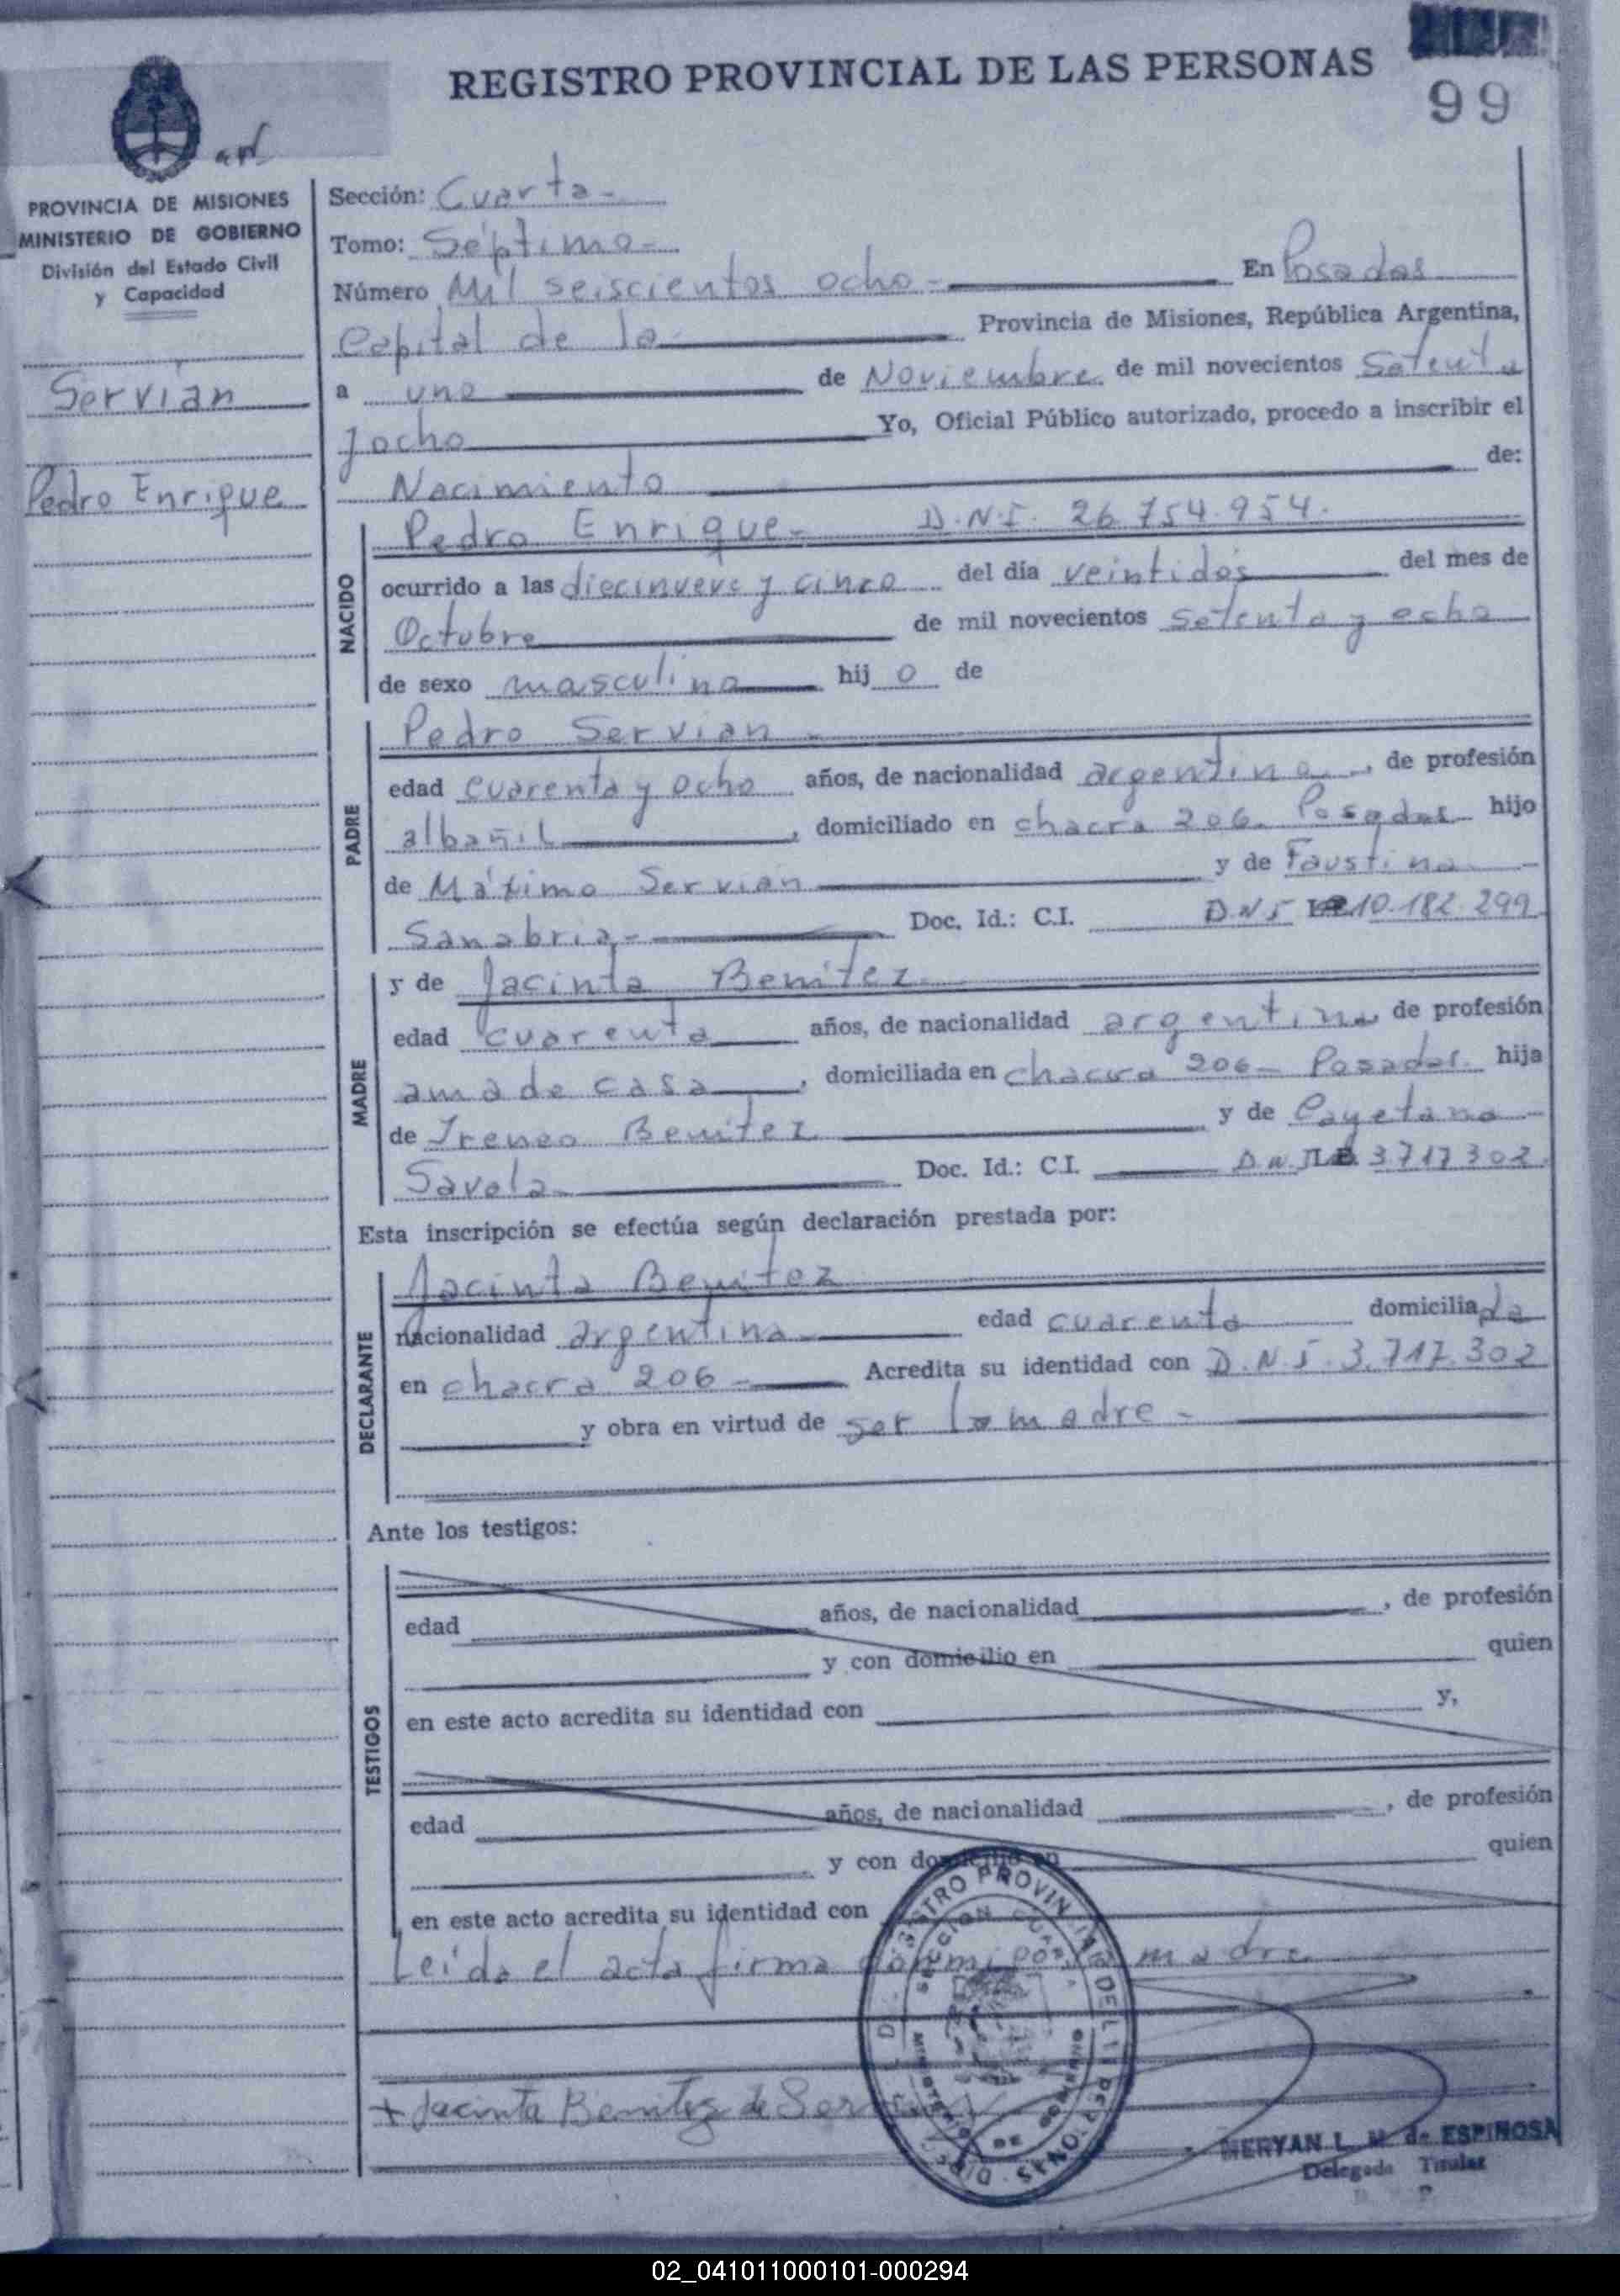 REGISTRO PROVINCIAL DE LAS PERSONAS
99
PROVINCIA DE MISIONES
MINISTERIO DE GOBIERNO
División del Estado Civil
y Capacidad
Servian
Pedro Enrique
Sección: Cuarta -
Tomo: Séptimo -
Número Mil seiscientos ocho - En Posadas
Capital de la Provincia de Misiones, República Argentina,
a uno de Noviembre de mil novecientos Setenta
y ocho Yo, Oficial Público autorizado, procedo a inscribir el
Nacimiento de:
NACIDO
Pedro Enrique - D.N.I. 26.754.954.
ocurrido a las diecinueve y cinco del día veintidós del mes de
Octubre de mil novecientos setenta y ocho
de sexo masculino hij o de
PADRE
Pedro Servian -
edad cuarenta y ocho años, de nacionalidad argentina, de profesión
albañil, domiciliado en chacra 206. Posadas hijo
de Máximo Servian y de Faustina
Sanabria - Doc. Id.: C.I. D.N.I 10.182.299
MADRE
y de Jacinta Benitez
edad cuarenta años, de nacionalidad argentina de profesión
ama de casa, domiciliada en chacra 206 - Posadas. hija
de Ireneo Benitez y de Cayetana
Savola Doc. Id.: C.I. D.N.I. 3.717.302.
Esta inscripción se efectúa según declaración prestada por:
DECLARANTE
Jacinta Benitez
nacionalidad argentina edad cuarenta domiciliada
en chacra 206 - Acredita su identidad con D.N.I. 3.717.302
y obra en virtud de ser la madre -
Ante los testigos:
TESTIGOS
edad años, de nacionalidad, de profesión
y con domicilio en quien
en este acto acredita su identidad con y,
edad años, de nacionalidad, de profesión
y con domicilio en quien
en este acto acredita su identidad con
Leída el acta firma conmigo la madre
+ Jacinta Benitez de Servian
SECCION CUARTA
MINISTERIO DE GOBIERNO
MERYAN L. M. de ESPINOSA
Delegada Titular
02_041011000101-000294